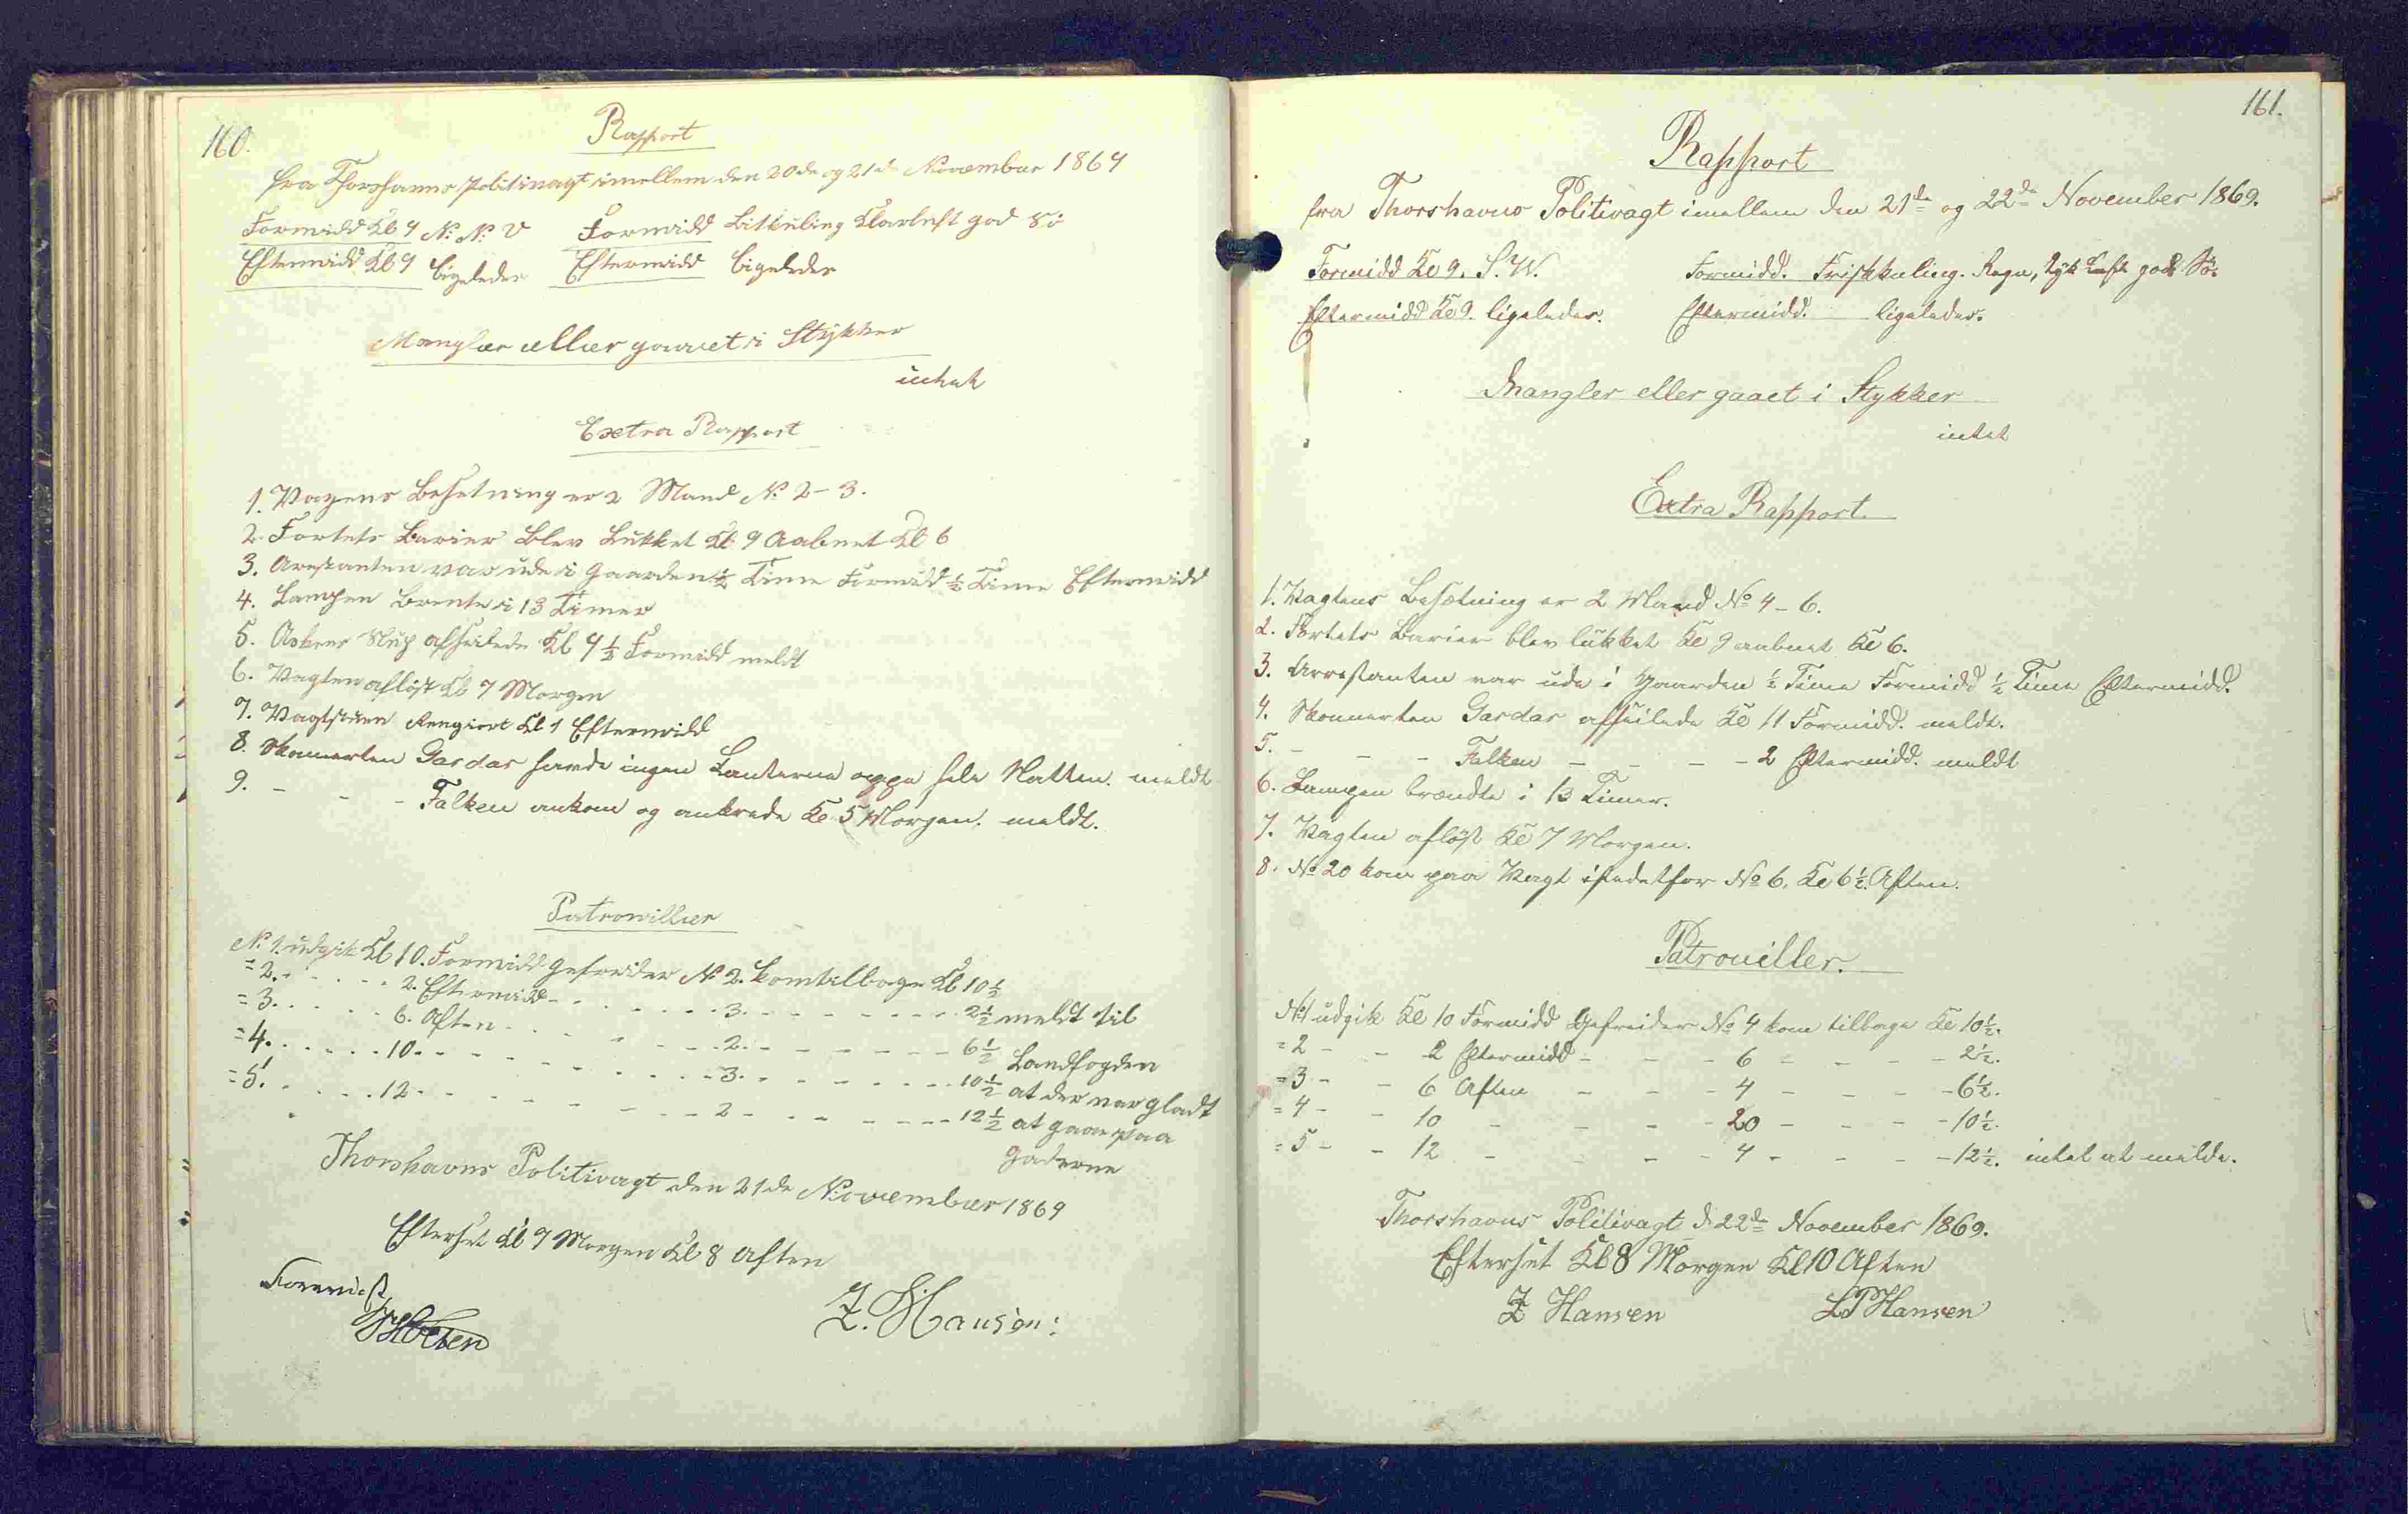 160.
Rapport
fra Thorshavns Politivagt imellem den 20de og 21de November 1869
Formidd Kl 9 N: N: O Formidd Litkuling Klarluft god Sö
Eftermidd Kl 9 Ligeledes Eftermidd Ligeledes
Mangler eller gaaet i Stykker
intet
Extra Rapport
1. Vagens Besetning er 2 Mand No 2-3.
2. Fortets Barier Blev Lukket Kl 9 Aabnet Kl 6
3. Arestanten var ude i Gaarden ½ Time Formidd ½ Time Eftermidd
4. Lampen Brente i 13 Timer
5. Askers Slup afseilede Kl 9½ Formidd meldt
6. Vagten aflöst Kl 7 Morgen
7. Vagtstuen Rengjort Kl 1 Eftermidd
8. Skonnerten Gardar havde ingen Lanterne oppe hele Natten. meldt
9. - - - Falken ankom og ankrede Kl 5 Morgen. meldt.
Patrouiller
No 1. udgik Kl 10. Formidd Gefreider No 2. kom tilbage Kl 10½
= 2. - - - 2. Eftermidd - - - 3. - - - 2½ meldt til
= 3. - - - 6. Aften - - - 2. - - - 6½ Landfogden
= 4. - - - 10. - - - 3. - - - 10½ at der var gladt
= 5. - - - 12 - - - 2 - - - 12½ at gaae paa
Gaderne
Thorshavns Politivagt den 21de November 1869
Efterset Kl 9 Morgen Kl 8 Aften
Z. Hansen:
161.
Rapport
fra Thorshavns Politivagt imellem den 21de og 22de November 1869.
Formidd Kl 9. S.W. Formidd. Friskkuling. Regn, tyk Luft god Sö.
Eftermidd Kl 9. ligeledes. Eftermidd. ligeledes.
Mangler eller gaaet i Stykker
intet
Extra Rapport.
1. Vagtens Besætning er 2 Mand No 4-6.
2. Fortets Barier blev lukket Kl 9 aabnet Kl 6.
3. Arrestanten var ude i Gaarden ½ Time Formidd ½ Time Eftermidd.
4. Skonnerten Gardar afseilede Kl 11 Formidd. meldt.
5. - - - Falken - - - - 2 Eftermidd. meldt
6. Lampen brændte i 13 Timer.
7. Vagten aflöst Kl 7 Morgen.
8. No 20 kom paa Vagt istedetfor No 6. Kl 6½ Aften.
Patrouiller.
No 1 udgik Kl 10 Formidd Gefreider No 4 kom tilbage Kl 10½.
= 2 - - 2 Eftermidd - - - 6 - - - 2½.
= 3 - - 6 Aften - - - 4 - - - 6½.
= 4 - - 10 - - - 20 - - - 10½.
= 5 - - 12 - - - 4 - - - 12½. intet at melde.
Thorshavns Politivagt d. 22de November 1869.
Efterset Kl 8 Morgen Kl 10 Aften
Z Hansen LP Hansen